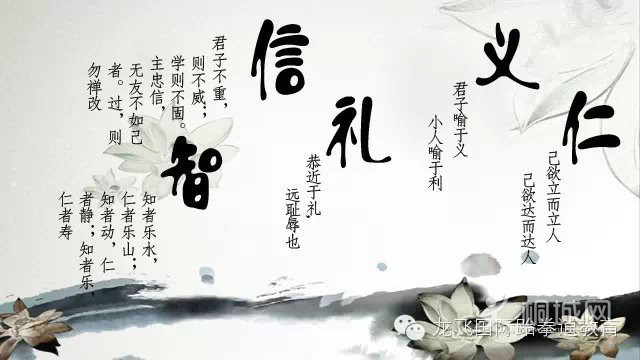 仁
己欲立而立人
己欲达而达人
义
君子喻于义
小人喻于利
礼
恭近于礼,
远耻辱也
信
君子不重，
则不威；
学则不固。
主忠信，
无友不如己
者。过，则
勿禅改
智
知者乐水，
仁者乐山；
知者动，仁
者静；知者乐，
仁者寿
桐城网
龙飞国际跆拳道教育